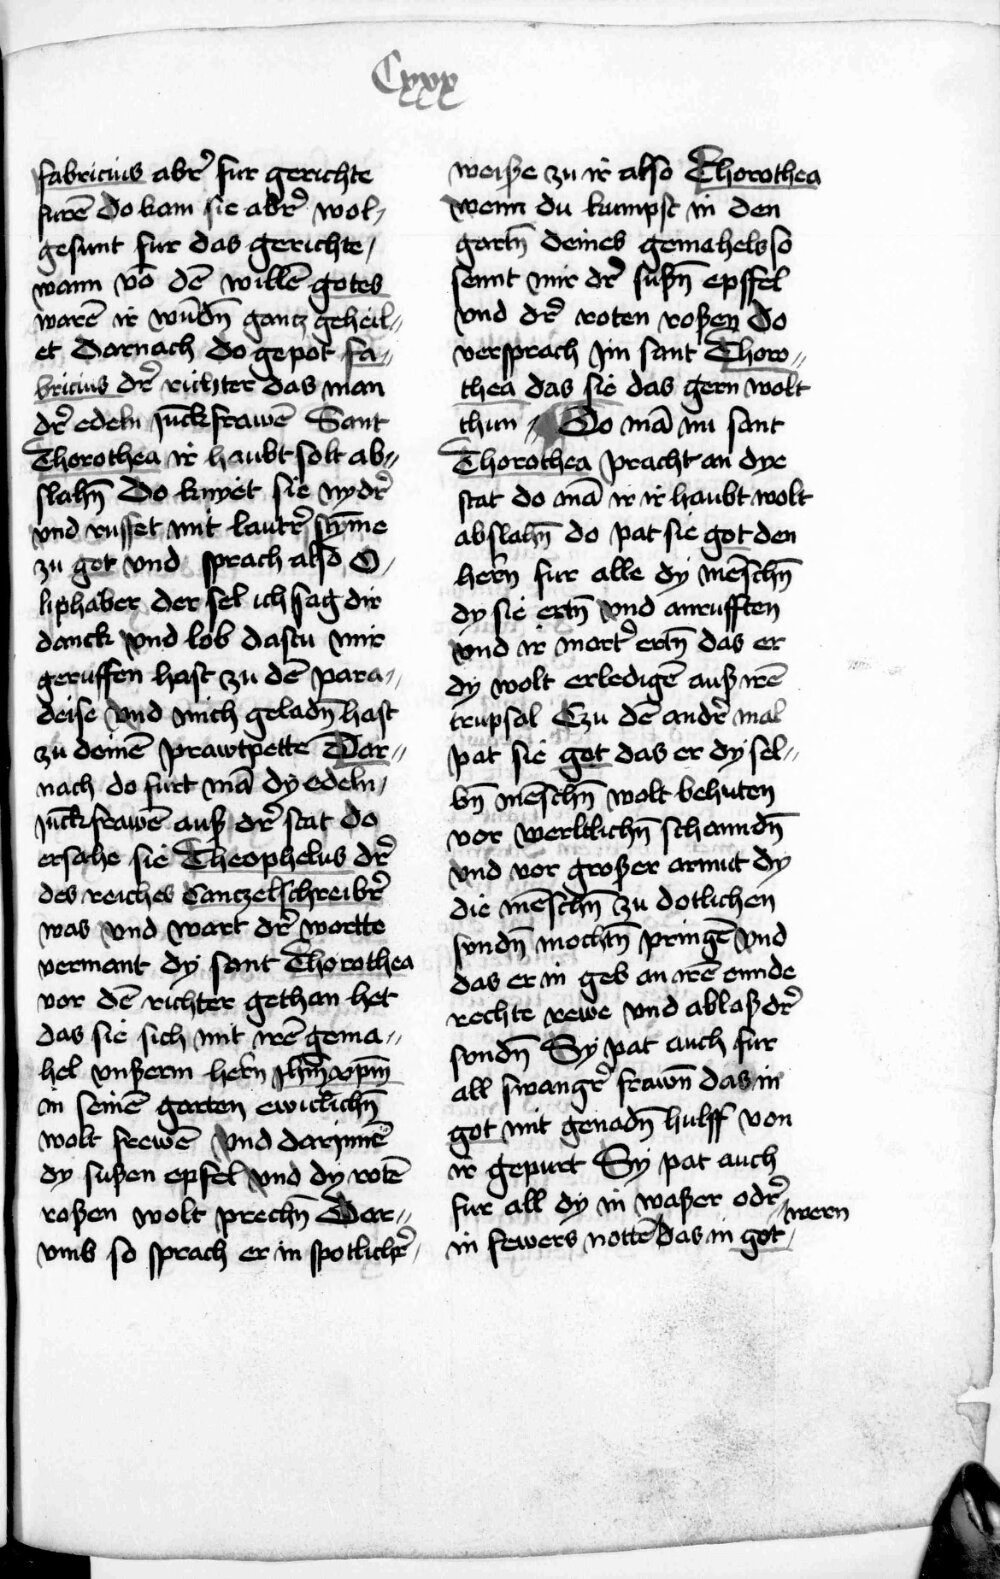 Cxxx
fabricius abr̉ fur gerichte
furē do kam sie abr̉ wol-
gesunt fur das gerichte /
wann vō dē willē gotes
warē ir wūdn̄ gantz geheil-
et Darnach do gepot fa-
bricius dr̉ richter das man
dr̉ edeln jūckfrawē Sant
Thorothea ir haubt solt ab-
slahn̄ Do knyet sie nydr̉
vnd ruffet mit lautr̉ stȳme
zu got vnd sprach also O /
liphaber der sel ich sag dir
danck vnd lob dastu mir
geruffen hast zu dē para-
deise vnd mich geladn̄ hast
zu deinē prawtpette Dar-
nach do furt mā dy edeln /
jūckfrawē auß dr̉ stat do
ersahe sie Theophelus dr̉
des reiches Cantzelschreibr̉
was vnd wart dr̉ wortte
vermant dy sant Thorothea
vor dē richter gethan het
das sie sich mit irē gema-
hel vnßerm hern̄ jhm̄ xpm̄
in seinē garten ewiclichn̄
wolt frewē vnd darjnnē
dy sußen epfel vnd dy rotē
roßen wolt prechn̄ Dar-
vmb so sprach er in spotlichr̉ /
weiße zu ir also Thorothea
wenn du kumpst in den
gartn̄ deines gemahels so
sennt mir dr̉ sußn̄ epffel
vnd dr̉ roten roßen Do
versprach jm sant Thoro-
thea das sie das gern wolt
thun Do mā nu sant
Thorothea pracht an dye
stat do mā ir ir haubt wolt
abslahn̄ do pat sie got den
hern̄ fur alle dy mēschn̄
dy sie ertn̄ vnd anrufften
vnd ir mart̉ ertn̄ das er
dy wolt erledigē auß irē
trupsal Czu dē andr̉ mal
pat sie got das er dy sel-
bn̄ mēschn̄ wolt behuten
vor werltlichn̄ schanndn̄
vnd vor großer armut dy
die mēschn̄ zu dotlichen
sundn̄ mochtn̄ pringē vnd
das er in geb an irē ennde
rechte rewe vnd ablaß dr̉
sundn̄ Sy pat auch fur
all swangr̉ frawn̄ das in
got mit genadn̄ hulff von
ir gepurt Sy pat auch
fur all dy in waßer odr̉ /
in fewers nottē das in got / wern